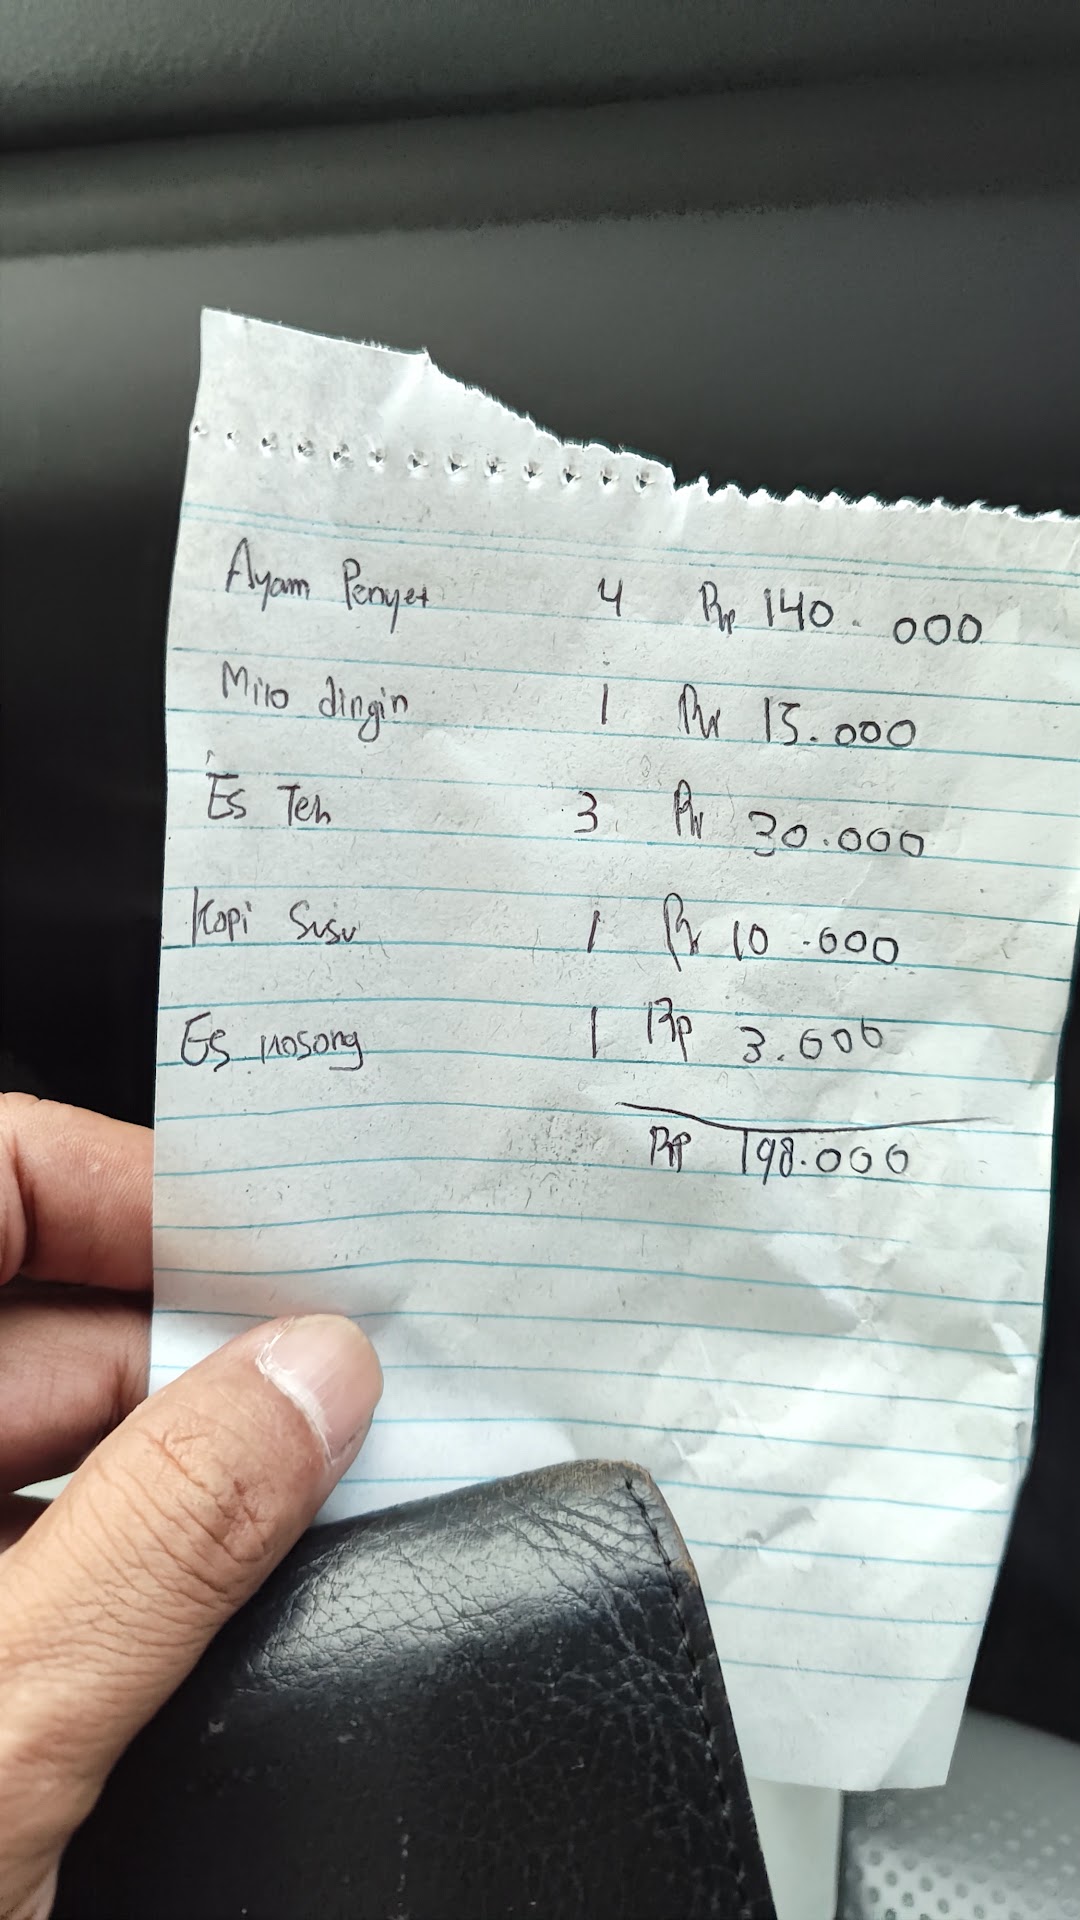 Ayam Penyet 4 Rp 140.000
Milo dingin 1 Rp 15.000
Es Teh 3 Rp 30.000
Kopi Susu 1 Rp 10.000
Es kosong 1 Rp 3.000
Rp 198.000